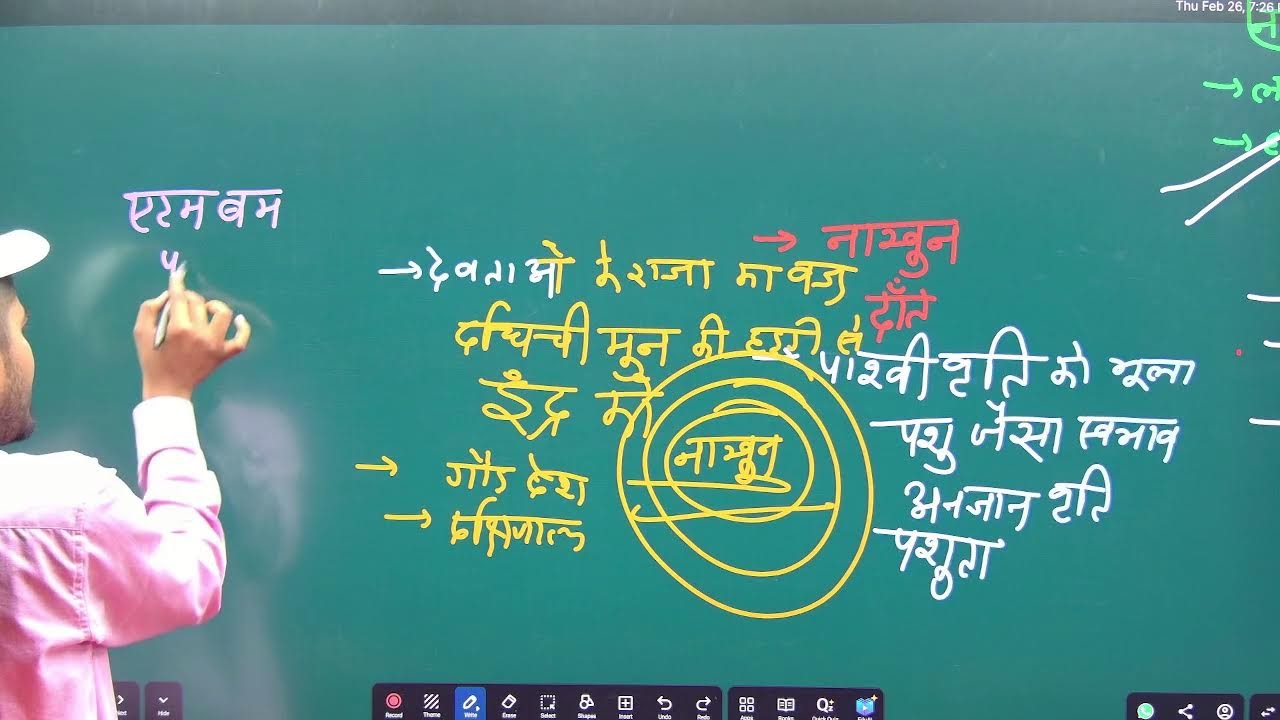 Thu Feb 26, 7:26
एटम बम
→ नाखुन
दाँत
→ देवताओ के राजा का वज्र
दधिची मुन की हडडी से
इंद्र को
→ गौड देश
→
नाखुन
पाश्वी वृति को भूला
पशु जैसा स्वभाव
अनजान वृति
पशुता
→ ल
→
Next
Hide
Record
Theme
Write
Erase
Select
Shapes
Insert
Undo
Redo
Apps
Books
Quick Quiz